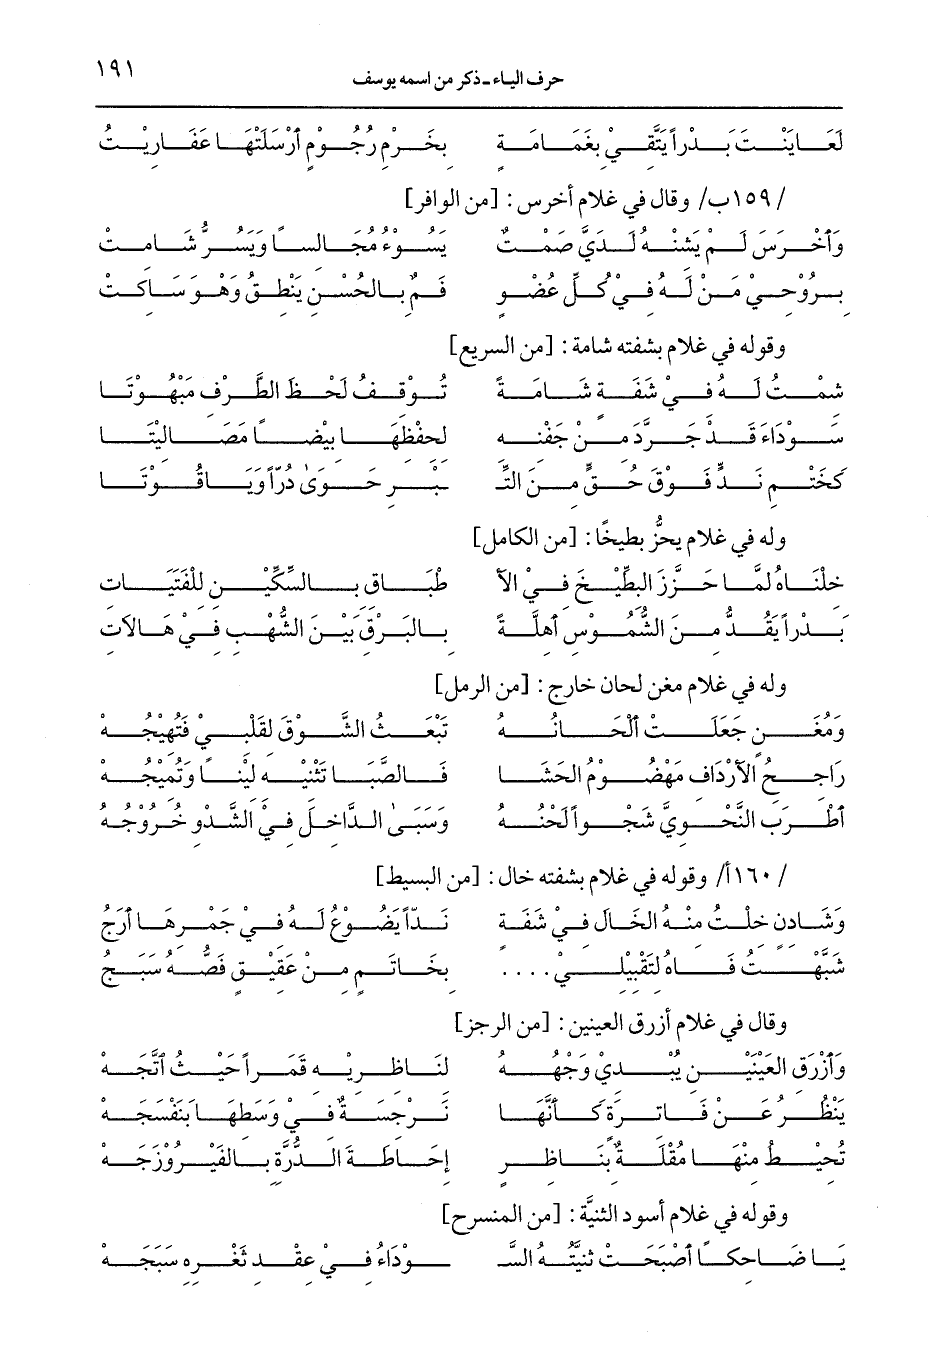 ١٩١
حرف الياء ـ ذكر من اسمه يوسف
لَعَايَنْتَ بَدْراً يَتَّقِيْ بِغَمَامَةٍ بِخَرْمِ رُجُوْمٍ أَرْسَلَتْهَا عَفَارِيْتُ
/١٥٩ب/ وقال في غلام أخرس: [من الوافر]
وَأَخْرَسَ لَمْ يَشِنْهُ لَدَيَّ صَمْتٌ يَسُوْءُ مُجَالِسًا وَيَسُرُّ شَامِتْ
بِرُوْحِيْ مَنْ لَهُ فِيْ كُلِّ عُضْوٍ فَمٌ بِالحُسْنِ يَنْطِقُ وَهْوَ سَاكِتْ
وقوله في غلام بشفته شامة: [من السريع]
شِمْتُ لَهُ فِيْ شَفَةٍ شَامَةً تُوْقِفُ لَحْظَ الطَّرْفِ مَبْهُوْتَا
سَوْدَاءَ قَدْ جَرَّدَ مِنْ جَفْنِهِ لِحِفْظِهَا بِيْضًا مَصَالِيْتَا
كَخَتْمِ نَدٍّ فَوْقَ حُقٍّ مِنَ التِّـ ـبْرِ حَوَىٰ دُرّاً وَيَاقُوْتَا
وله في غلام يحزُّ بطيخًا: [من الكامل]
خِلْنَاهُ لَمَّا حَزَّزَ البِطِّيْخَ فِيْ الأَ طْبَاقِ بِالسِّكِّيْنِ لِلْفَتَيَاتِ
بَدْراً يَقُدُّ مِنَ الشُّمُوْسِ أَهِلَّةً بِالبَرْقِ بَيْنَ الشُّهْبِ فِيْ هَالاَتِ
وله في غلام مغن لحان خارج: [من الرمل]
وَمُغَنٍّ جَعَلَتْ أَلْحَانُهُ تَبْعَثُ الشَّوْقَ لِقَلْبِيْ فَتُهِيْجُهْ
رَاجِحُ الأَرْدَافِ مَهْضُوْمُ الحَشَا فَالصَّبَا تَثْنِيْهِ لِيْنًا وَتُمِيْجُهْ
أَطْرَبَ النَّحْوِيَّ شَجْواً لَحْنُهُ وَسَبَىٰ الدَّاخِلَ فِيْ الشَّدْوِ خُرُوْجُهْ
/١٦٠أ/ وقوله في غلام بشفته خال: [من البسيط]
وَشَادِنٍ خِلْتُ مِنْهُ الخَالَ فِيْ شَفَةٍ نَدّاً يَضُوْعُ لَهُ فِيْ جَمْرِهَا أَرَجُ
شَبَّهْتُ فَاهُ لِتَقْبِيْلِيْ .... بِخَاتَمٍ مِنْ عَقِيْقٍ فَصُّهُ سَبَجُ
وقال في غلام أزرق العينين: [من الرجز]
وَأَزْرَقِ العَيْنَيْنِ يُبْدِيْ وَجْهُهُ لِنَاظِرِيْهِ قَمَراً حَيْثُ اتَّجَهْ
يَنْظُرُ عَنْ فَاتِرَةٍ كَأَنَّهَا نَرْجِسَةٌ فِيْ وَسْطِهَا بَنَفْسَجَهْ
تُحِيْطُ مِنْهَا مُقْلَةٌ بِنَاظِرٍ إِحَاطَةَ الدُّرَّةِ بِالفَيْرُوْزَجَهْ
وقوله في غلام أسود الثنيَّة: [من المنسرح]
يَا ضَاحِكًا أَصْبَحَتْ ثَنِيَّتُهُ السَّـ ـوْدَاءُ فِيْ عِقْدِ ثَغْرِهِ سَبَجَهْ